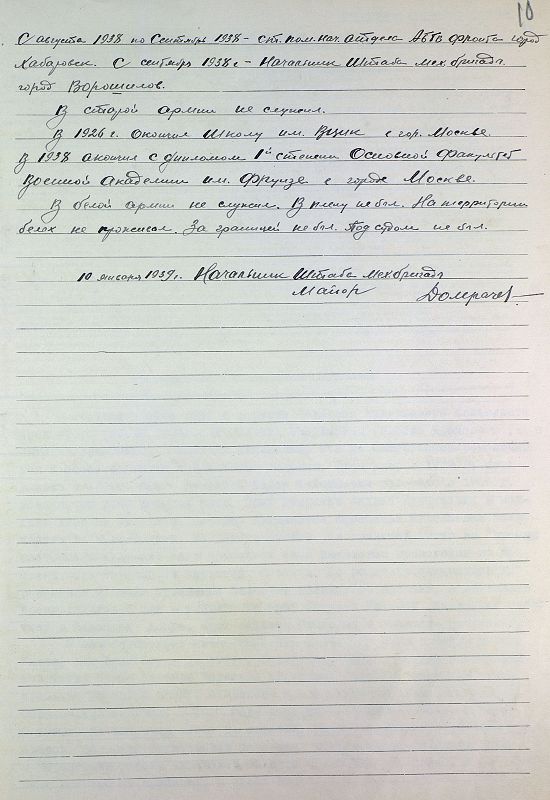 10
С августа 1938 по Сентябрь 1938 - ст. пом. нач. отдела АБТВ фронта город
Хабаровск. С сентября 1938 г - Начальник Штаба мехбригады
город Ворошилов.
В старой армии не служил.
В 1926 г. окончил Школу им. ВЦИК в гор. Москве.
В 1938 окончил с дипломом 1й степени Основной Факультет
Военной Академии им. Фрунзе в городе Москве.
В белой армии не служил. В плену не был. На территории
белых не проживал. За границей не был. Под судом не был.
10 января 1939 г. Начальник Штаба мехбригады
Майор